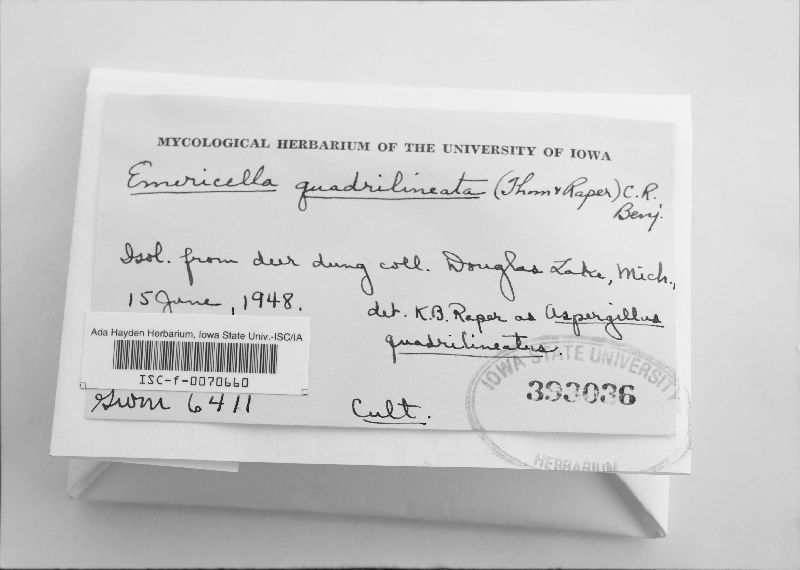 MYCOLOGICAL HERBARIUM OF THE UNIVERSITY OF IOWA
Emericella quadrilineata (Thom & Raper) C.R.
Benj.
Isol. from deer dung coll. Douglas Lake, Mich.,
15 June, 1948.
det. K.B. Raper as Aspergillus
quadrilineatus.
Ada Hayden Herbarium, Iowa State Univ.-ISC/IA
ISC-f-0070660
GWM 6411
Cult.
IOWA STATE UNIVERSITY
393036
HERBARIUM